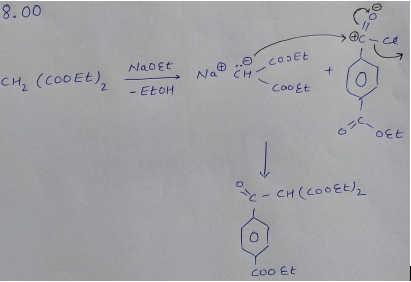 8.00
CH₂(COOEt)₂
NaOEt
- EtOH
Na⊕
⊖
CH
COOEt
COOEt
+
O⊖
⊕C - Cl
O
C
O
OEt
O
C - CH(COOEt)₂
O
COOEt